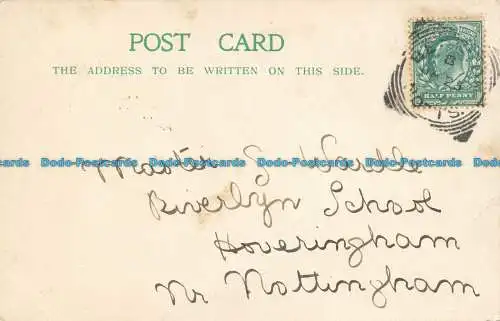 POST CARD
THE ADDRESS TO BE WRITTEN ON THIS SIDE.
HALF PENNY
Dodo-Postcards Dodo-Postcards Dodo-Postcards Dodo-Postcards
Master S Wardle
Biverlyn School
Hoveringham
Nr Nottingham